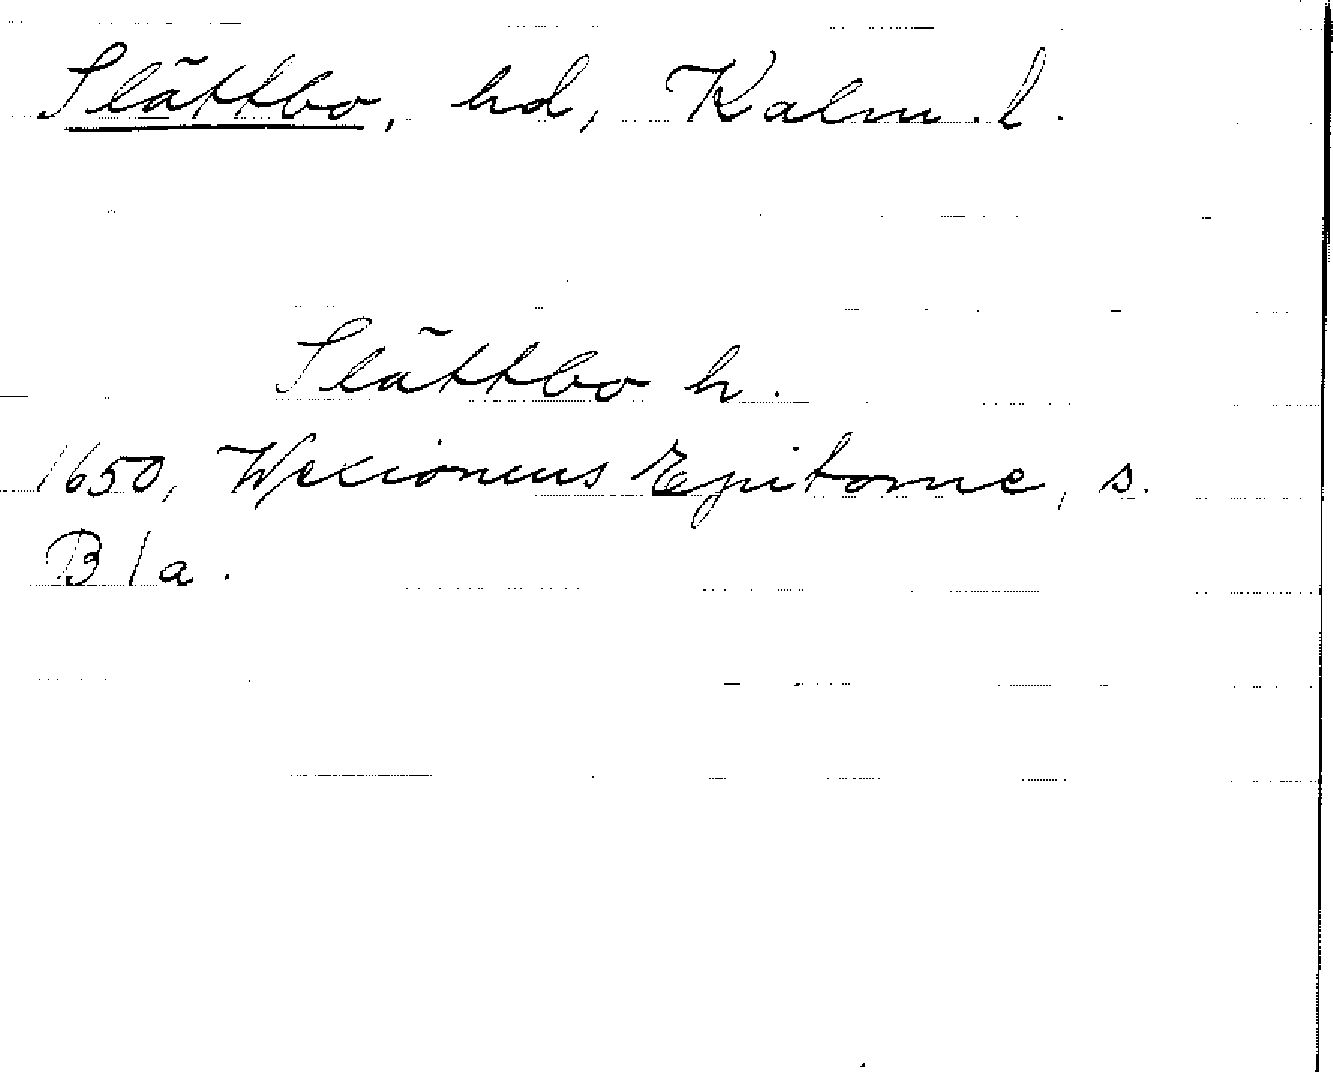 Slättbo, hd, Kalm. l.
Slättbo h.
1650, Wexioneus Epitome, s.
B 1 a.